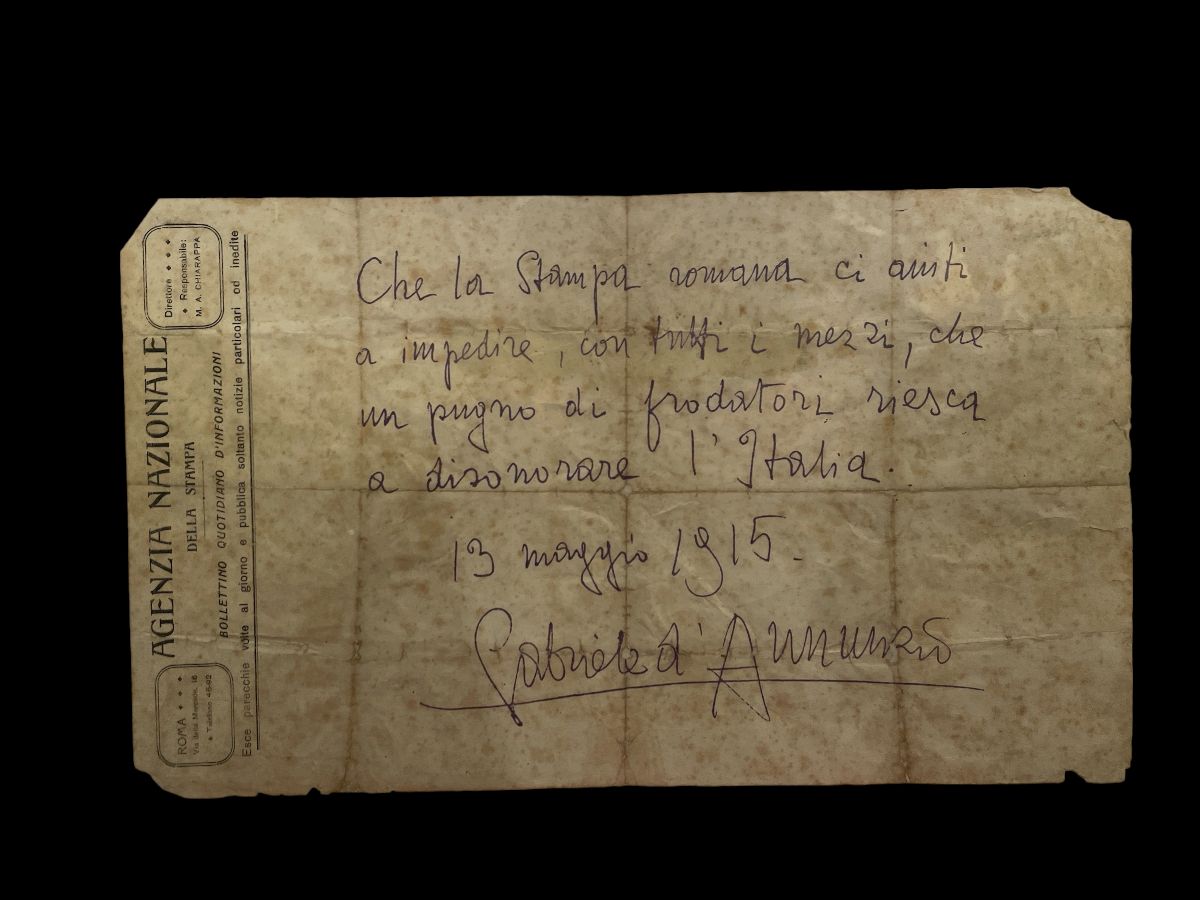 AGENZIA NAZIONALE
DELLA STAMPA
BOLLETTINO QUOTIDIANO D'INFORMAZIONI
Esce parecchie volte al giorno e pubblica soltanto notizie particolari od inedite
ROMA
Telefono 45-92
Direttore
Responsabile:
M. A. CHIARAPPA
Che la Stampa romana ci aiuti
a impedire, con tutti i mezzi, che
un pugno di frodatori riesca
a disonorare l'Italia.
13 maggio 1915.
Gabriele d'Annunzio